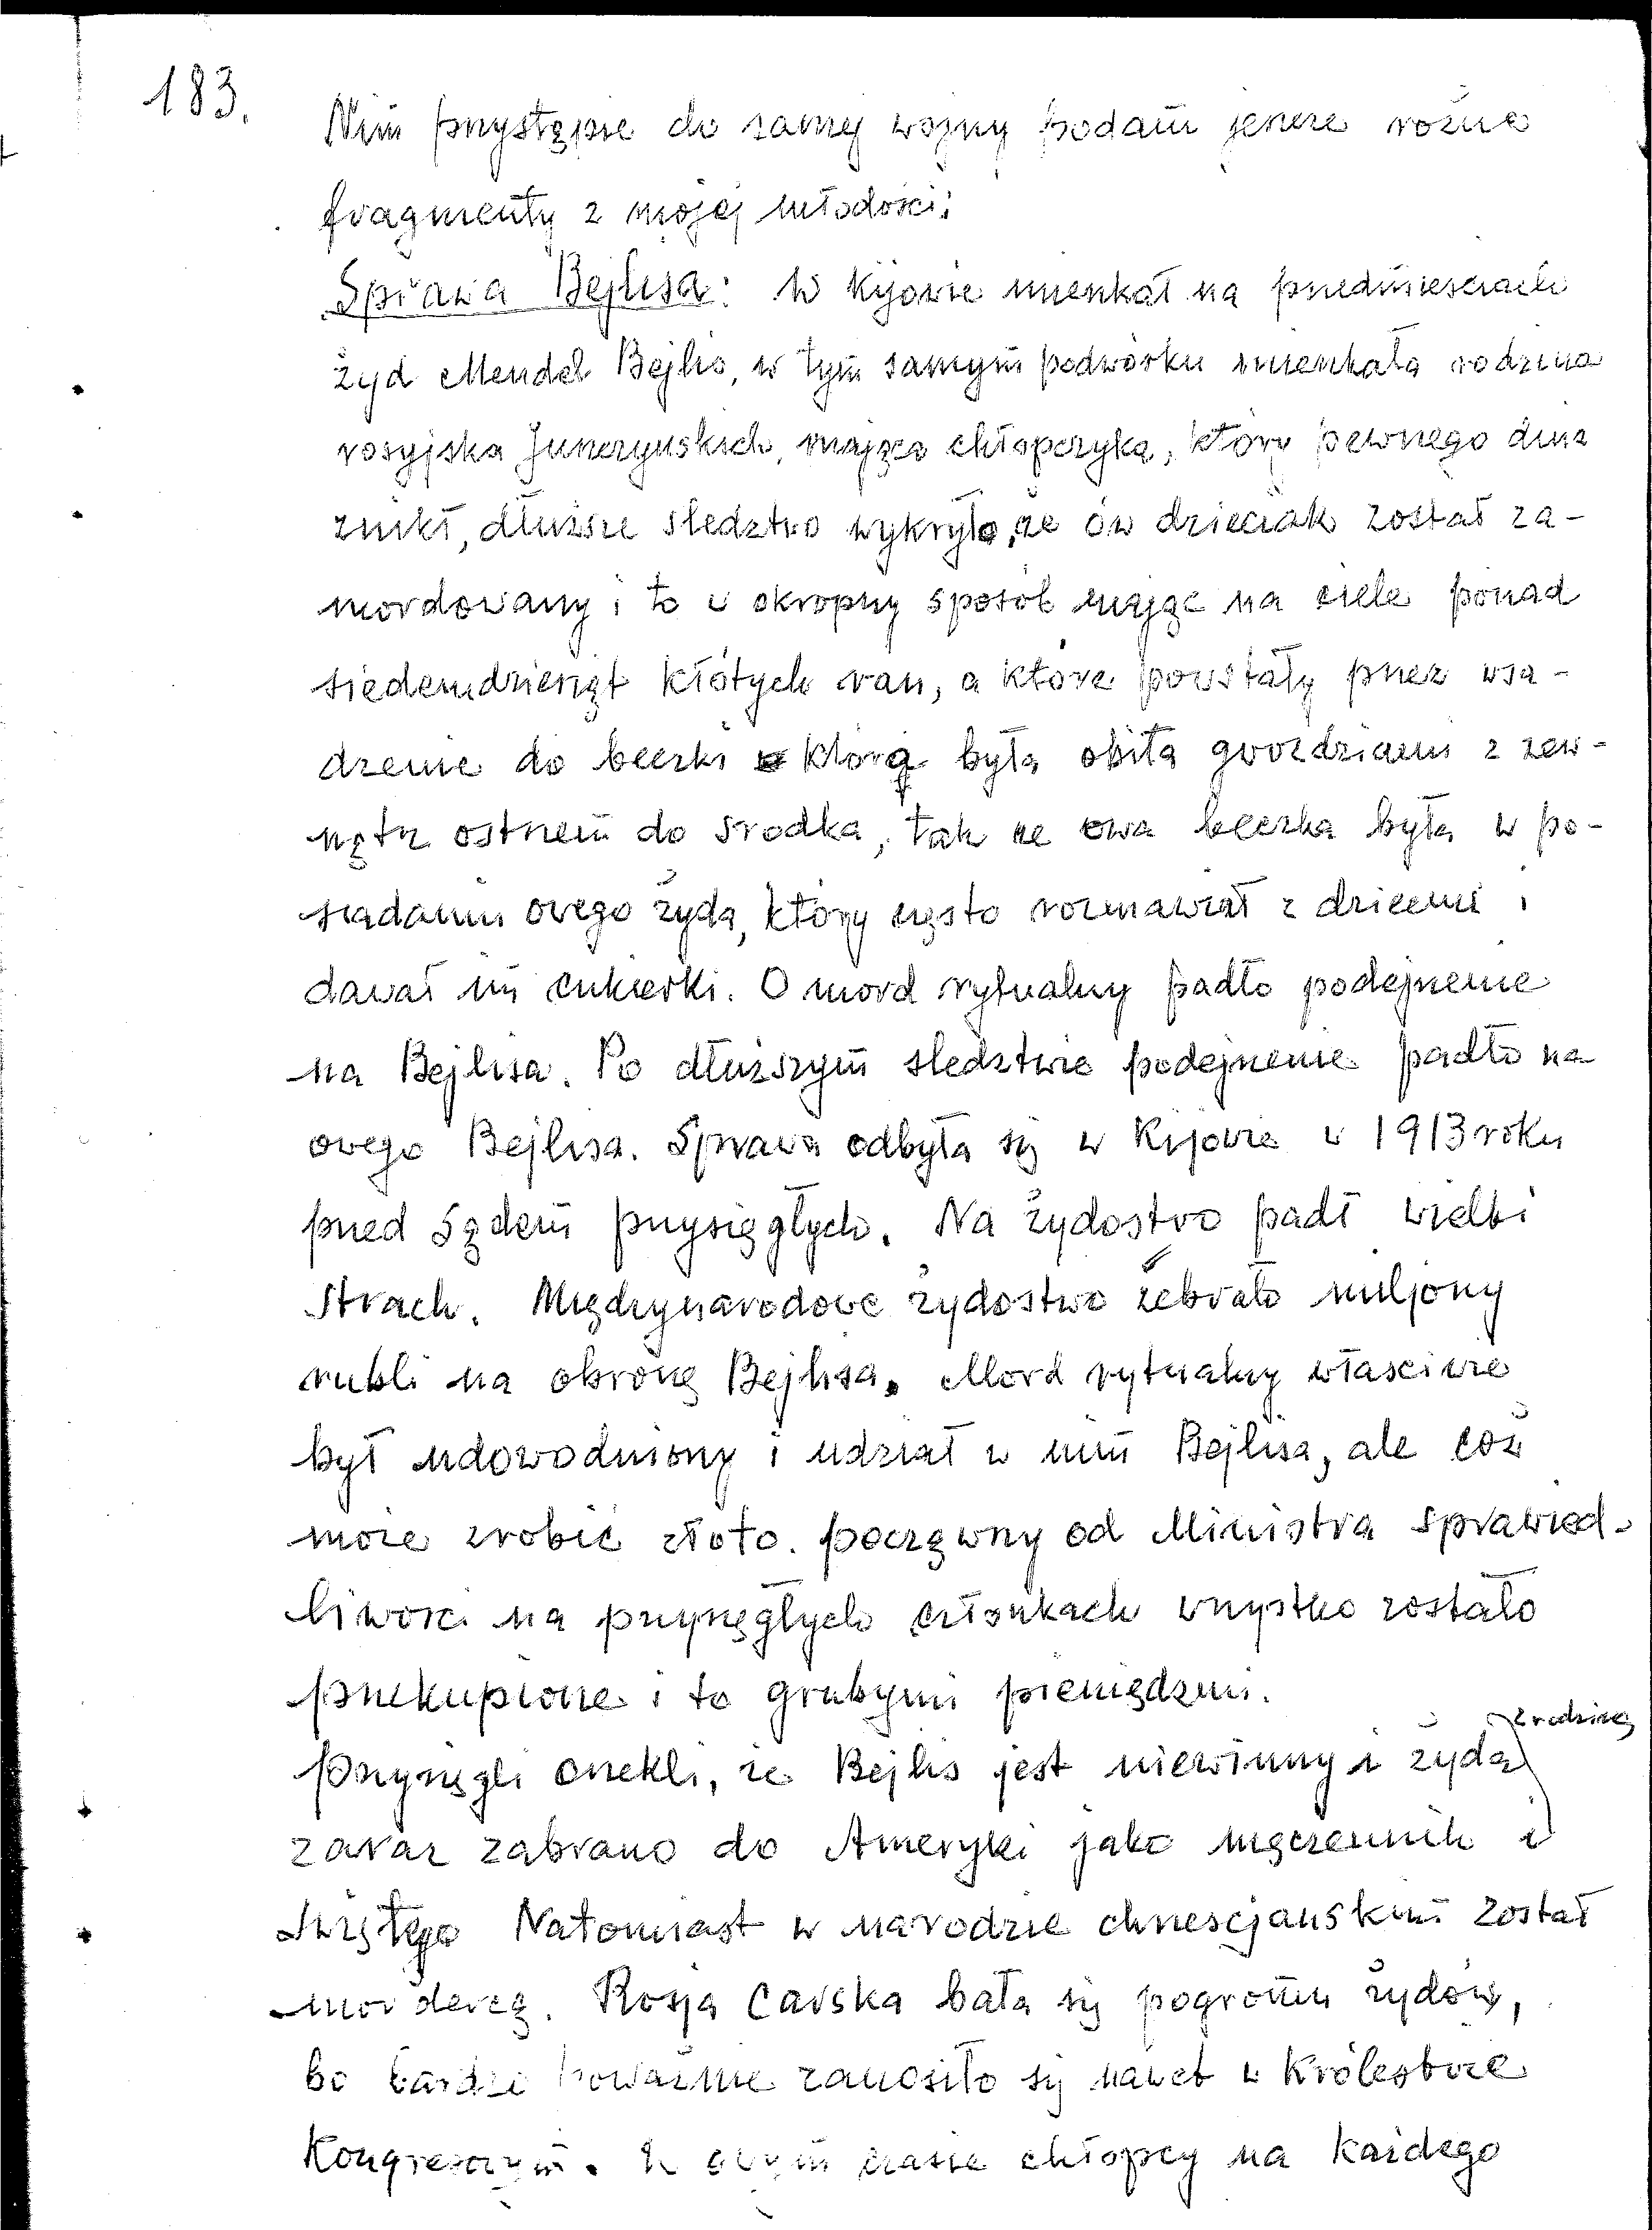 183.
Nim przystąpię do samej wojny podam jeszcze różne
fragmenty z mojej młodości:
Sprawa Bejlisa: W Kijowie mieszkał na przedmieściach
żyd Mendel Bejlis, w tym samym podwórku mieszkała rodzina
rosyjska Juszczyńskich, mająca chłopczyka, który pewnego dnia
znikł, dłuższe śledztwo wykryło, że ów dzieciak został za-
mordowany i to w okropny sposób mając na ciele ponad
siedemdziesiąt kłótych ran, a które powstały przez wsa-
dzenie do beczki która była obita gwoździami z zew-
nątrz ostrzem do środka, tak że owa beczka była w po-
siadaniu owego żyda, który często rozmawiał z dziećmi i
dawał im cukierki. O mord rytualny padło podejrzenie
na Bejlisa. Po dłuższym śledztwie podejrzenie padło na
owego Bejlisa. Sprawa odbyła się w Kijowie w 1913 roku
przed sądem przysięgłych. Na żydostwo padł wielki
strach. Międzynarodowe żydostwo zebrało miljony
rubli na obronę Bejlisa. Mord rytualny właściwie
był udowodniony i udział w nim Bejlisa, ale cóż
może zrobić złoto. począwszy od Ministra sprawied-
liwości na przysięgłych członkach wszystko zostało
przekupione i to grubymi pieniędzmi.
Przysięgli orzekli, że Bejlis jest niewinny i żyda z rodziną
zaraz zabrano do Ameryki jako męczennik i
świętego Natomiast w narodzie chrześcjańskim został
mordercą. Rosja carska bała się pogromu żydów,
bo bardzo poważnie zanosiło się nawet w Królestwie
Kongresowym. W owym czasie chłopcy na każdego